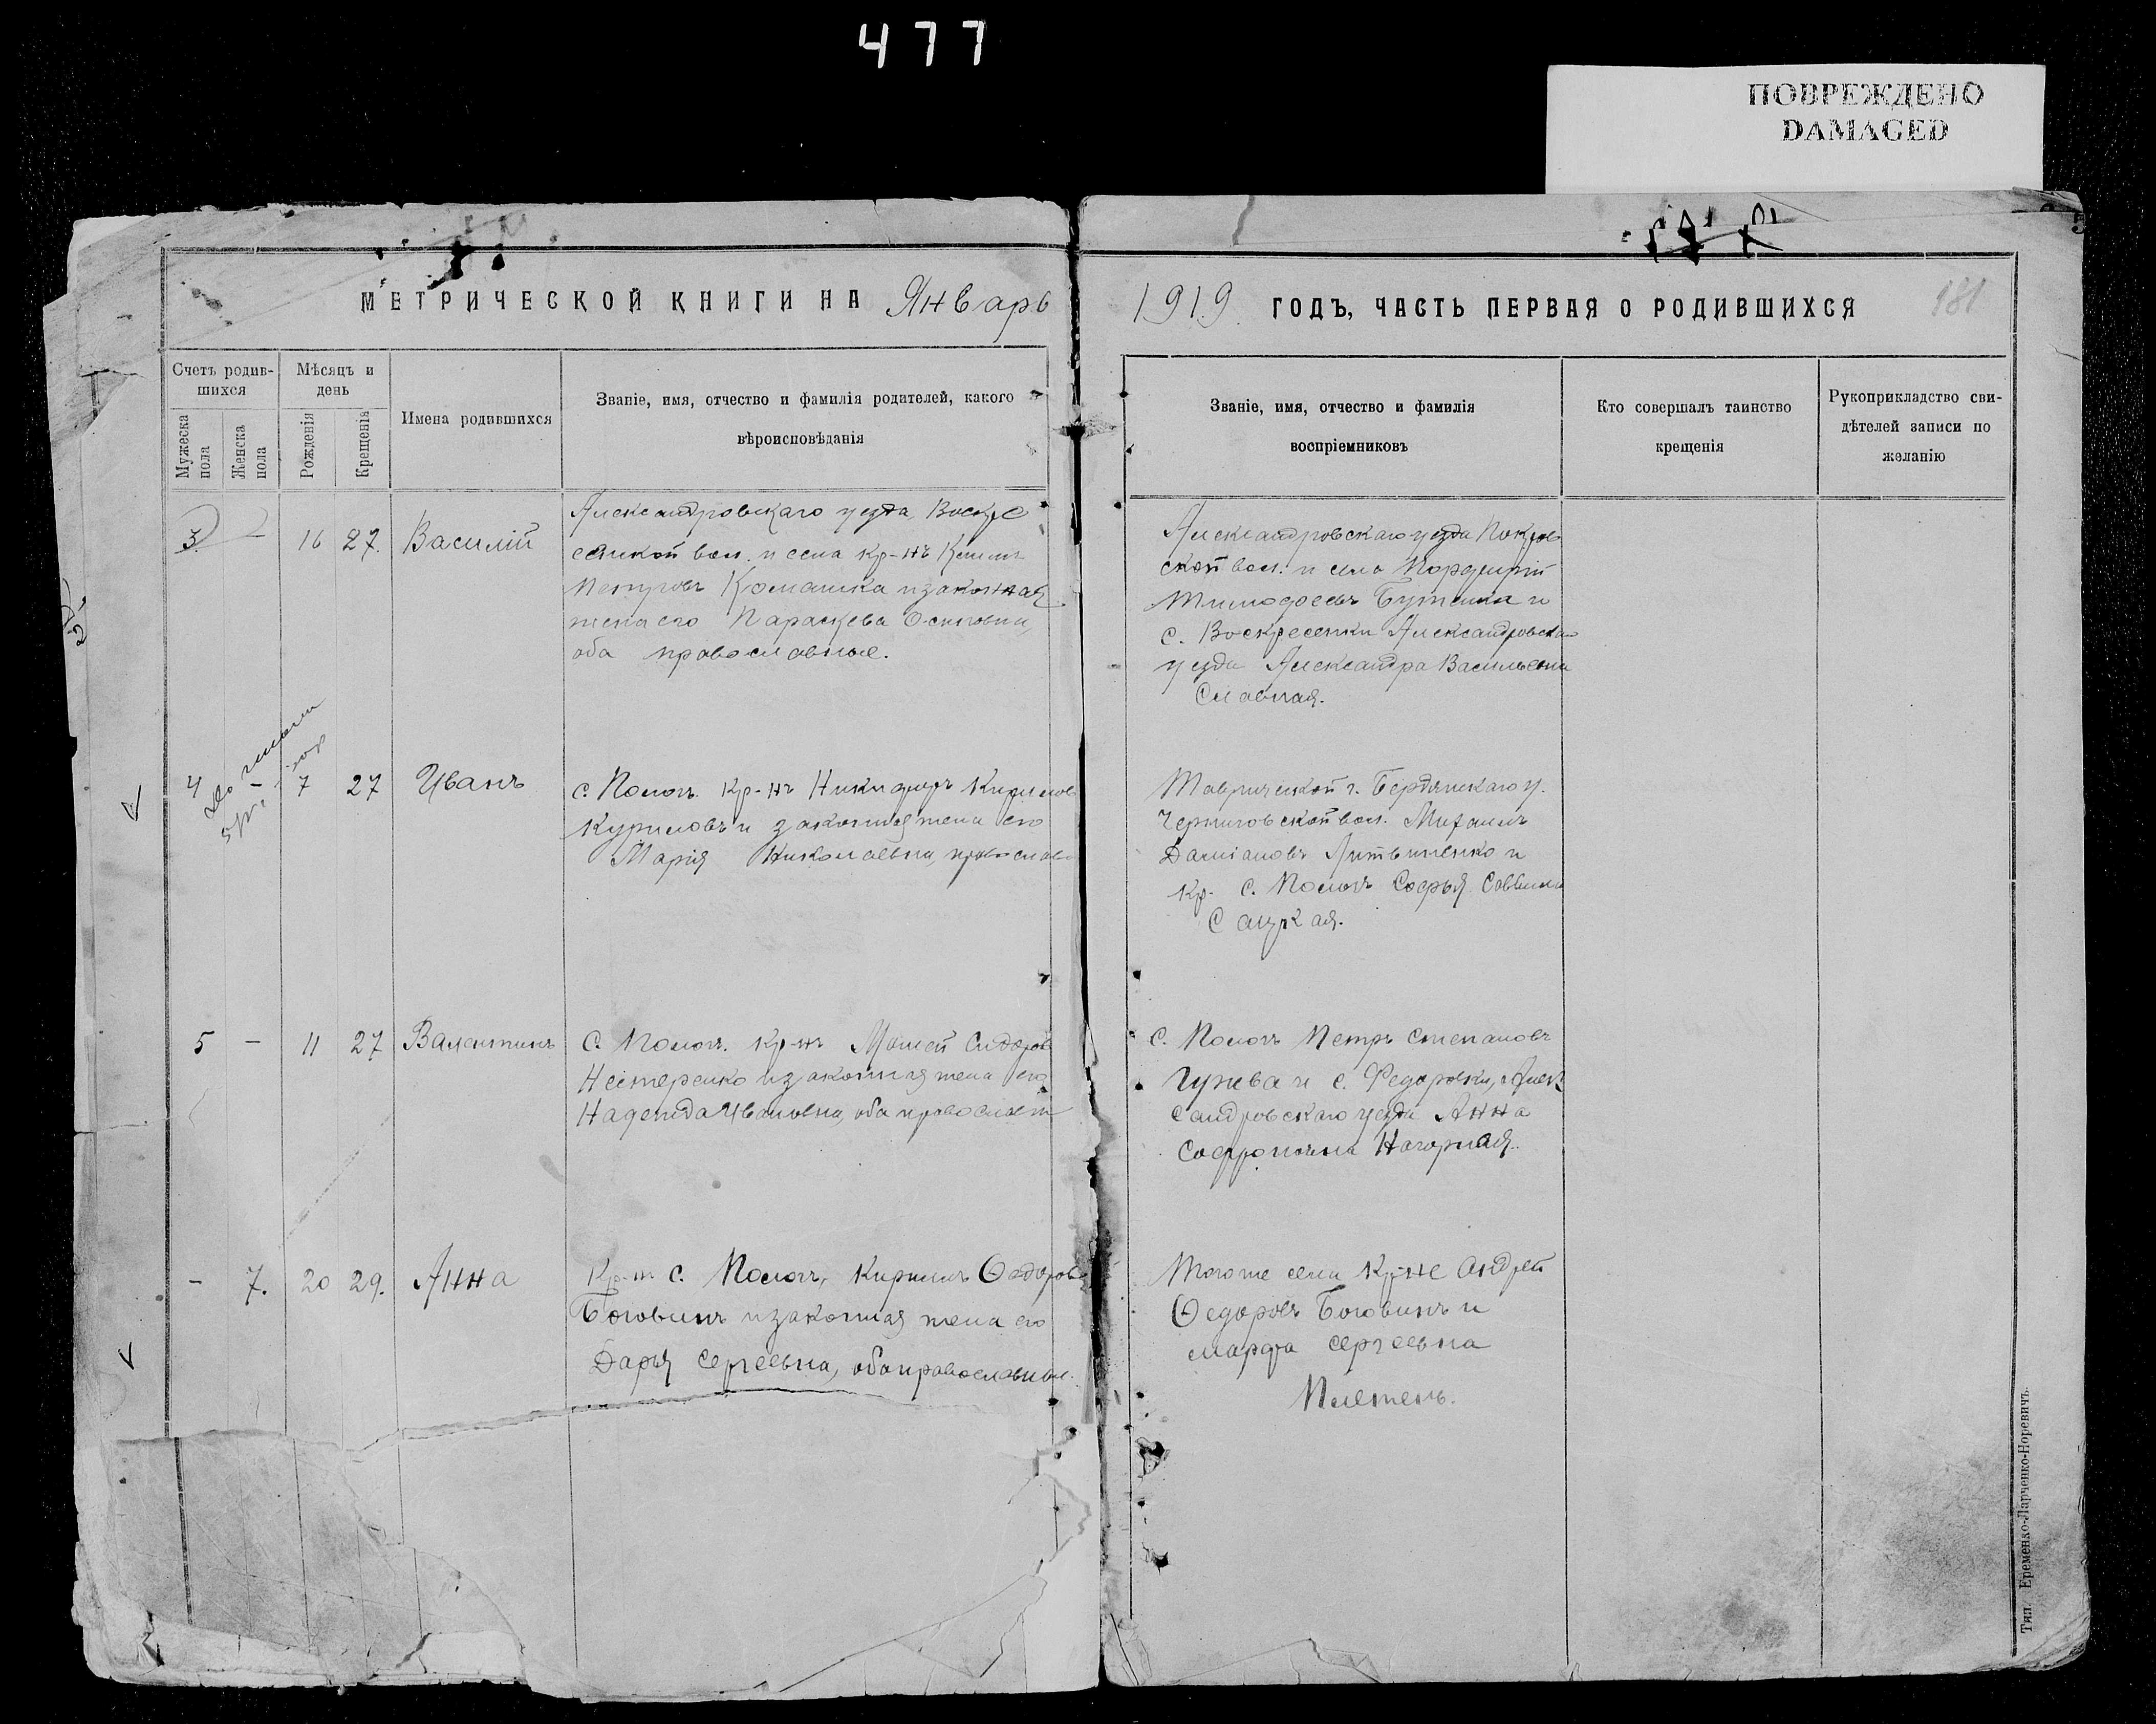 477
ПОВРЕЖДЕНО
DAMAGED
МЕТРИЧЕСКОЙ КНИГИ НА Январь
1919 ГОДЪ, ЧАСТЬ ПЕРВАЯ О РОДИВШИХСЯ
181
Счетъ родив-
шихся
Мужеска
пола
Женска
пола
Мѣсяцъ и
день
Рожденія
Крещенія
Имена родившихся
Званіе, имя, отчество и фамилія родителей, какого
вѣроисповѣданія
Званіе, имя, отчество и фамилія
воспріемниковъ
Кто совершалъ таинство
крещенія
Рукоприкладство сви-
дѣтелей записи по
желанію
3. – 16 27. Василій
Александровскаго уезда, Воскре
сенской вол. и села кр-нъ
Петровъ и законная
жена его Параскева Осиповна,
оба православные.
Александровскаго уезда Покров
ской вол. и села
Тимофеевъ и
с. Воскресенки Александровскаго
уезда Александра Васильевна
Славная.
4 – 7 27 Иванъ
с. Пологъ кр-нъ Никифоръ Кирилов
Куриловъ и законная жена его
Марія Николаевна, православ
Таврической г. Бердянскаго у.
Черниговской вол. Михаилъ
Даміановъ Литвиненко и
кр. с. Пологъ Софья
5 – 11 27 Валентинъ
С. Пологъ. кр-нъ Сидоров
Нестеренко и законная жена его
Надежда Ивановна, оба православн
с. Пологъ Петръ Степановъ
и с. Федоровки, Алек
сандровскаго уезда Анна
Софроновна Нагорная.
– 7. 20 29. Анна
Кр-нъ с. Пологъ, Кириллъ Ѳедоровъ
Боговинъ и законная жена его
Дарья Сергеевна, оба православные.
Тогоже села кр-не Андрей
Ѳедоровъ Боговинъ и
Марфа Сергеевна
Плетень.
Тип. Еременко-Ларченко-Норевичъ.